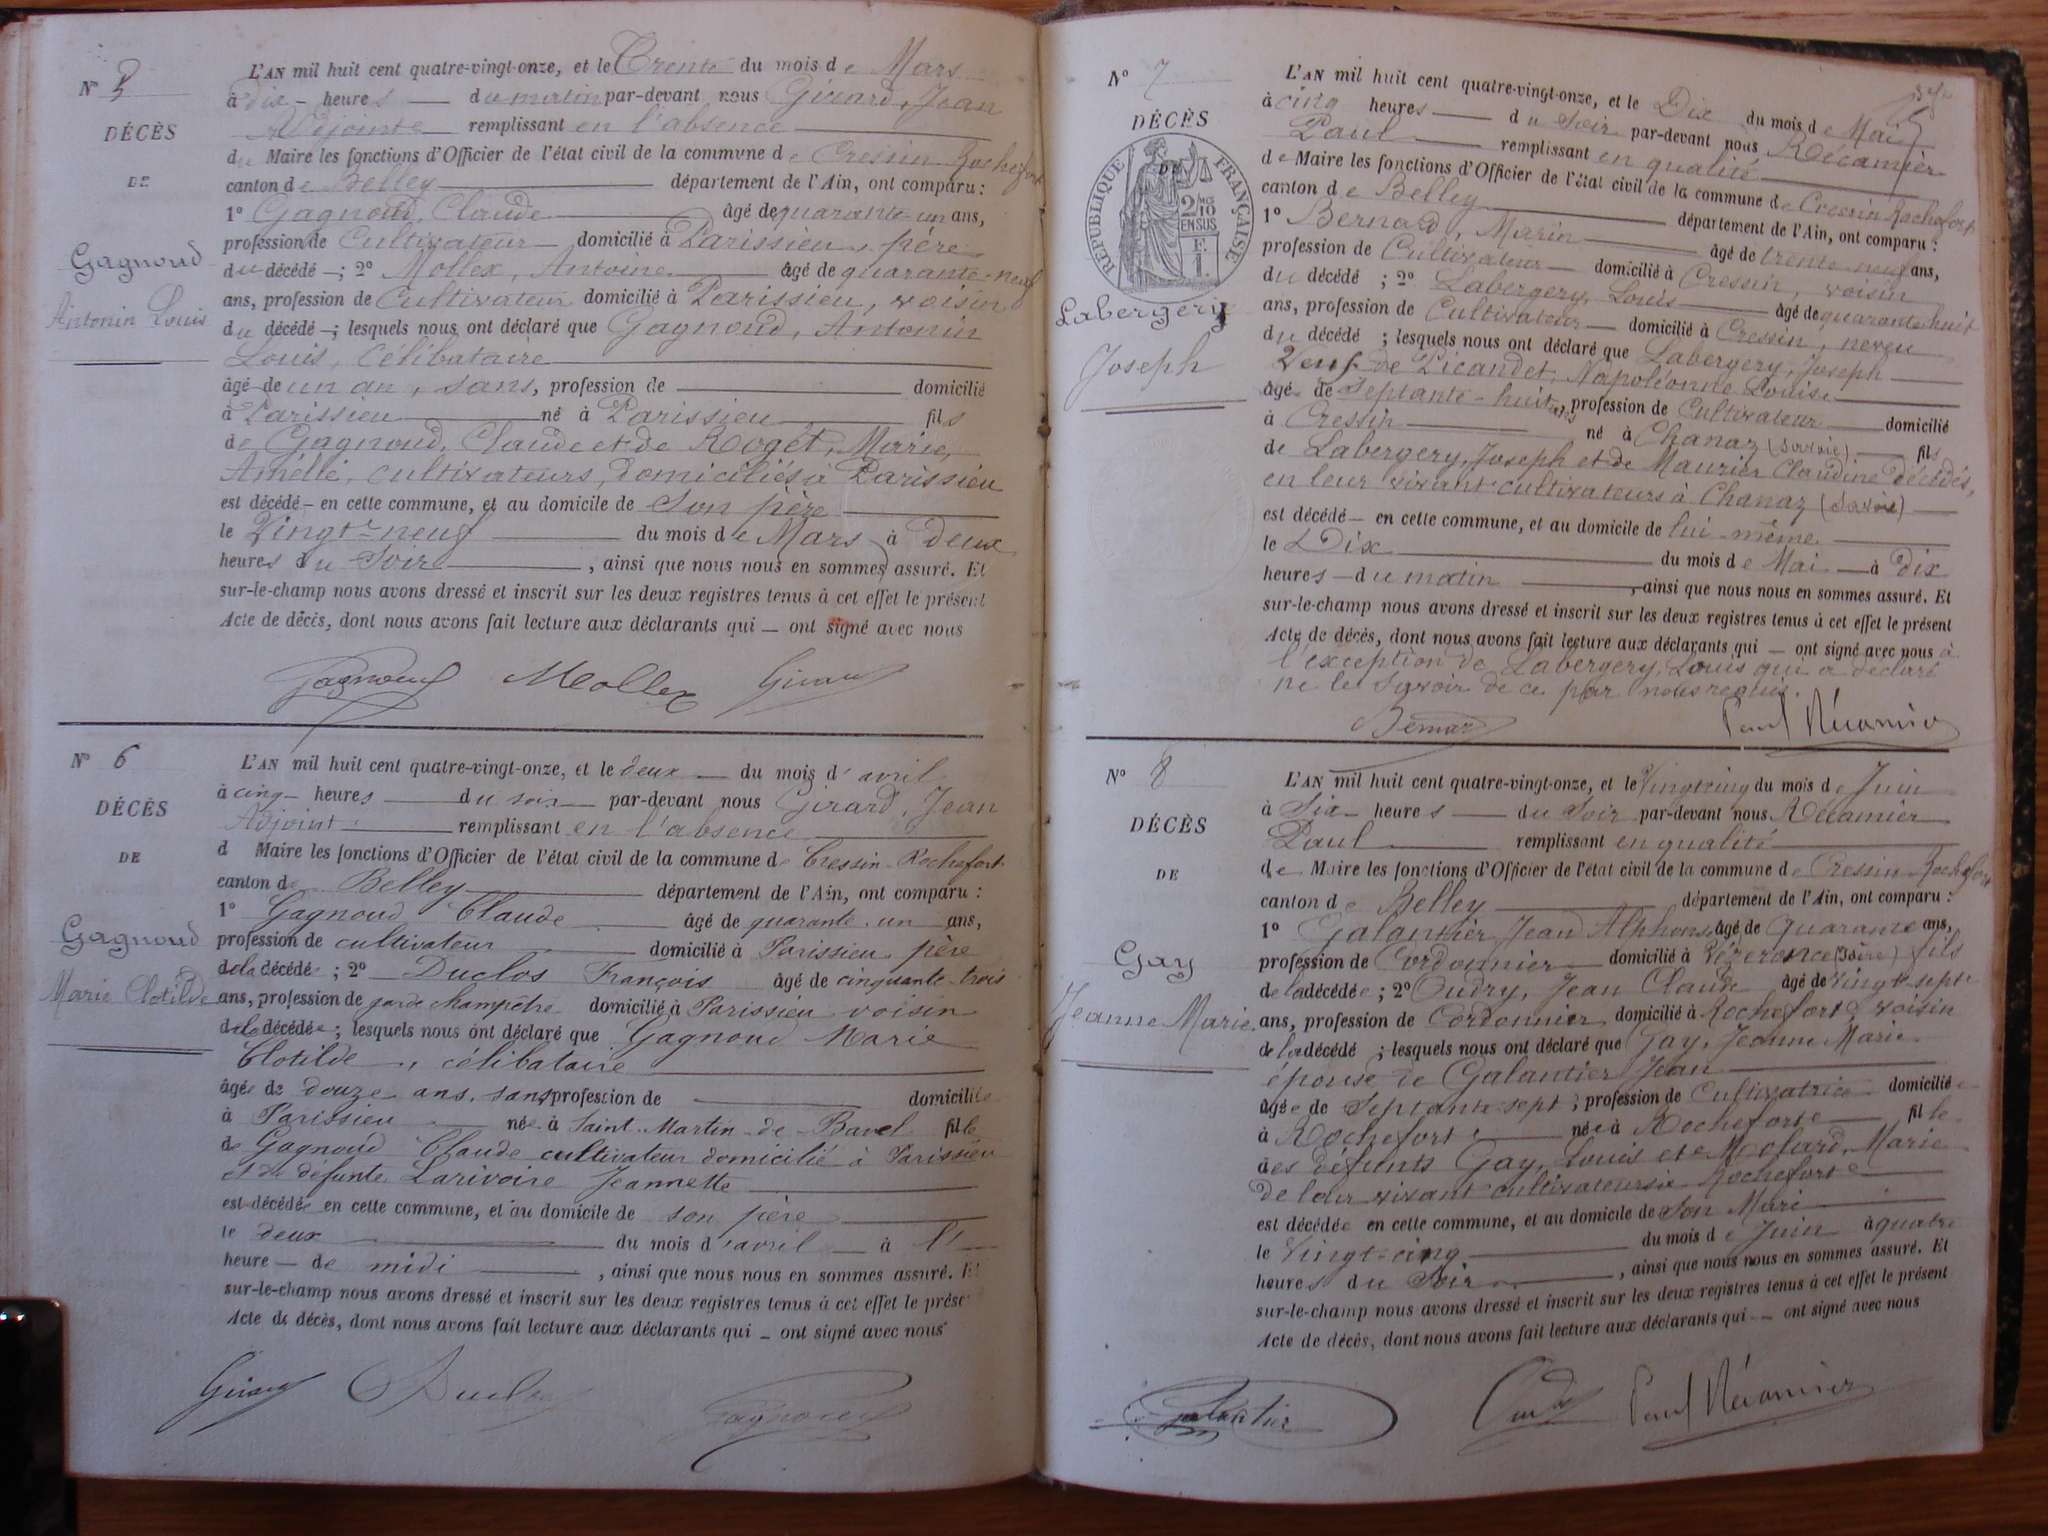 N° 5
DÉCÈS
DE
Gagnoud
Antonin Louis
L'AN mil huit cent quatre-vingt-onze, et le Trente du mois de Mars
à dix heures du matin par-devant nous Girard, Jean
Adjointe remplissant en l'absence
du Maire les fonctions d'Officier de l'état civil de la commune de Cressin-Rochefort
canton de Belley département de l'Ain, ont comparu :
1° Gagnoud, Claude âgé de quarante-un ans,
profession de Cultivateur domicilié à Parissieu, père
du décédé ; 2° Mollex, Antoine âgé de quarante-neuf
ans, profession de Cultivateur domicilié à Parissieu, voisin
du décédé ; lesquels nous ont déclaré que Gagnoud, Antonin
Louis, Célibataire
âgé de un an, sans, profession de domicilié
à Parissieu né à Parissieu fils
de Gagnoud, Claude et de Roget, Marie,
Amélie, cultivateurs, domiciliés à Parissieu
est décédé en cette commune, et au domicile de Son père
le Vingt-neuf du mois de Mars à deux
heures du Soir, ainsi que nous nous en sommes assuré. Et
sur-le-champ nous avons dressé et inscrit sur les deux registres tenus à cet effet le présent
Acte de décès, dont nous avons fait lecture aux déclarants qui ont signé avec nous
Gagnoud Mollex Girard
N° 6
DÉCÈS
DE
Gagnoud
Marie Clotilde
L'AN mil huit cent quatre-vingt-onze, et le deux du mois d'avril
à cinq heures du soir par-devant nous Girard, Jean
Adjoint remplissant en l'absence
d Maire les fonctions d'Officier de l'état civil de la commune de Cressin-Rochefort
canton de Belley département de l'Ain, ont comparu :
1° Gagnoud Claude âgé de quarante-un ans,
profession de cultivateur domicilié à Parissieu père
de la décédée ; 2° Duclos François âgé de cinquante-trois
ans, profession de garde champêtre domicilié à Parissieu voisin
de la décédée ; lesquels nous ont déclaré que Gagnoud Marie
Clotilde, célibataire
âgée de douze ans, sans profession de domiciliée
à Parissieu née à Saint-Martin-de-Bavel fille
de Gagnoud Claude cultivateur domicilié à Parissieu
et de défunte Larivoire Jeannette
est décédée en cette commune, et au domicile de son père
le deux du mois d'avril à l'
heure de midi, ainsi que nous nous en sommes assuré. Et
sur-le-champ nous avons dressé et inscrit sur les deux registres tenus à cet effet le prése
Acte de décès, dont nous avons fait lecture aux déclarants qui ont signé avec nous
Girard Duclos Gagnoud
N° 7
DÉCÈS
DE
RÉPUBLIQUE FRANÇAISE
2 DES 10 EN SUS
F. 1.
Labergery
Joseph
L'AN mil huit cent quatre-vingt-onze, et le Dix du mois de Mai
à cinq heures du Soir par-devant nous Récamier
Paul remplissant en qualité
de Maire les fonctions d'Officier de l'état civil de la commune de Cressin Rochefort
canton de Belley département de l'Ain, ont comparu :
1° Bernard, Marin âgé de trente-neuf ans,
profession de Cultivateur domicilié à Cressin, voisin
du décédé ; 2° Labergery, Louis âgé de quarante-huit
ans, profession de Cultivateur domicilié à Cressin, neveu
du décédé ; lesquels nous ont déclaré que Labergery, Joseph
Veuf de Picandet, Napoléonne Louise
âgé de Septante-huit ans, profession de Cultivateur domicilié
à Cressin né à Chanaz (Savoie) fils
de Labergery, Joseph et de Maurier Claudine décédés,
en leur vivant cultivateurs à Chanaz (Savoie)
est décédé en cette commune, et au domicile de lui-même
le Dix du mois de Mai à dix
heures du matin, ainsi que nous nous en sommes assuré. Et
sur-le-champ nous avons dressé et inscrit sur les deux registres tenus à cet effet le présent
Acte de décès, dont nous avons fait lecture aux déclarants qui ont signé avec nous à
l'exception de Labergery, Louis qui a déclaré
ne le savoir de ce par nous requis.
Bernard Paul Récamier
N° 8
DÉCÈS
DE
Gay
Jeanne Marie
L'AN mil huit cent quatre-vingt-onze, et le Vingt-cinq du mois de Juin
à Six heures du Soir par-devant nous Récamier
Paul remplissant en qualité
de Maire les fonctions d'Officier de l'état civil de la commune de Cressin Rochefort
canton de Belley département de l'Ain, ont comparu :
1° Galantier, Jean Alphonse âgé de Quarante ans,
profession de Cordonnier domicilié à Vézeronce (Isère) fils
de la décédée ; 2° Oudry, Jean Claude âgé de vingt-sept
ans, profession de Cordonnier domicilié à Rochefort voisin
de la décédé ; lesquels nous ont déclaré que Gay, Jeanne Marie
épouse de Galantier Jean
âgée de Septante-sept ; profession de Cultivatrice domiciliée
à Rochefort née à Rochefort fille
des défunts Gay, Louis et Molard, Marie
de leur vivant cultivateurs à Rochefort
est décédée en cette commune, et au domicile de Son Mari
le Vingt-cinq du mois de Juin à quatre
heures du Soir, ainsi que nous nous en sommes assuré. Et
sur-le-champ nous avons dressé et inscrit sur les deux registres tenus à cet effet le présent
Acte de décès, dont nous avons fait lecture aux déclarants qui ont signé avec nous
Galantier Oudry Paul Récamier